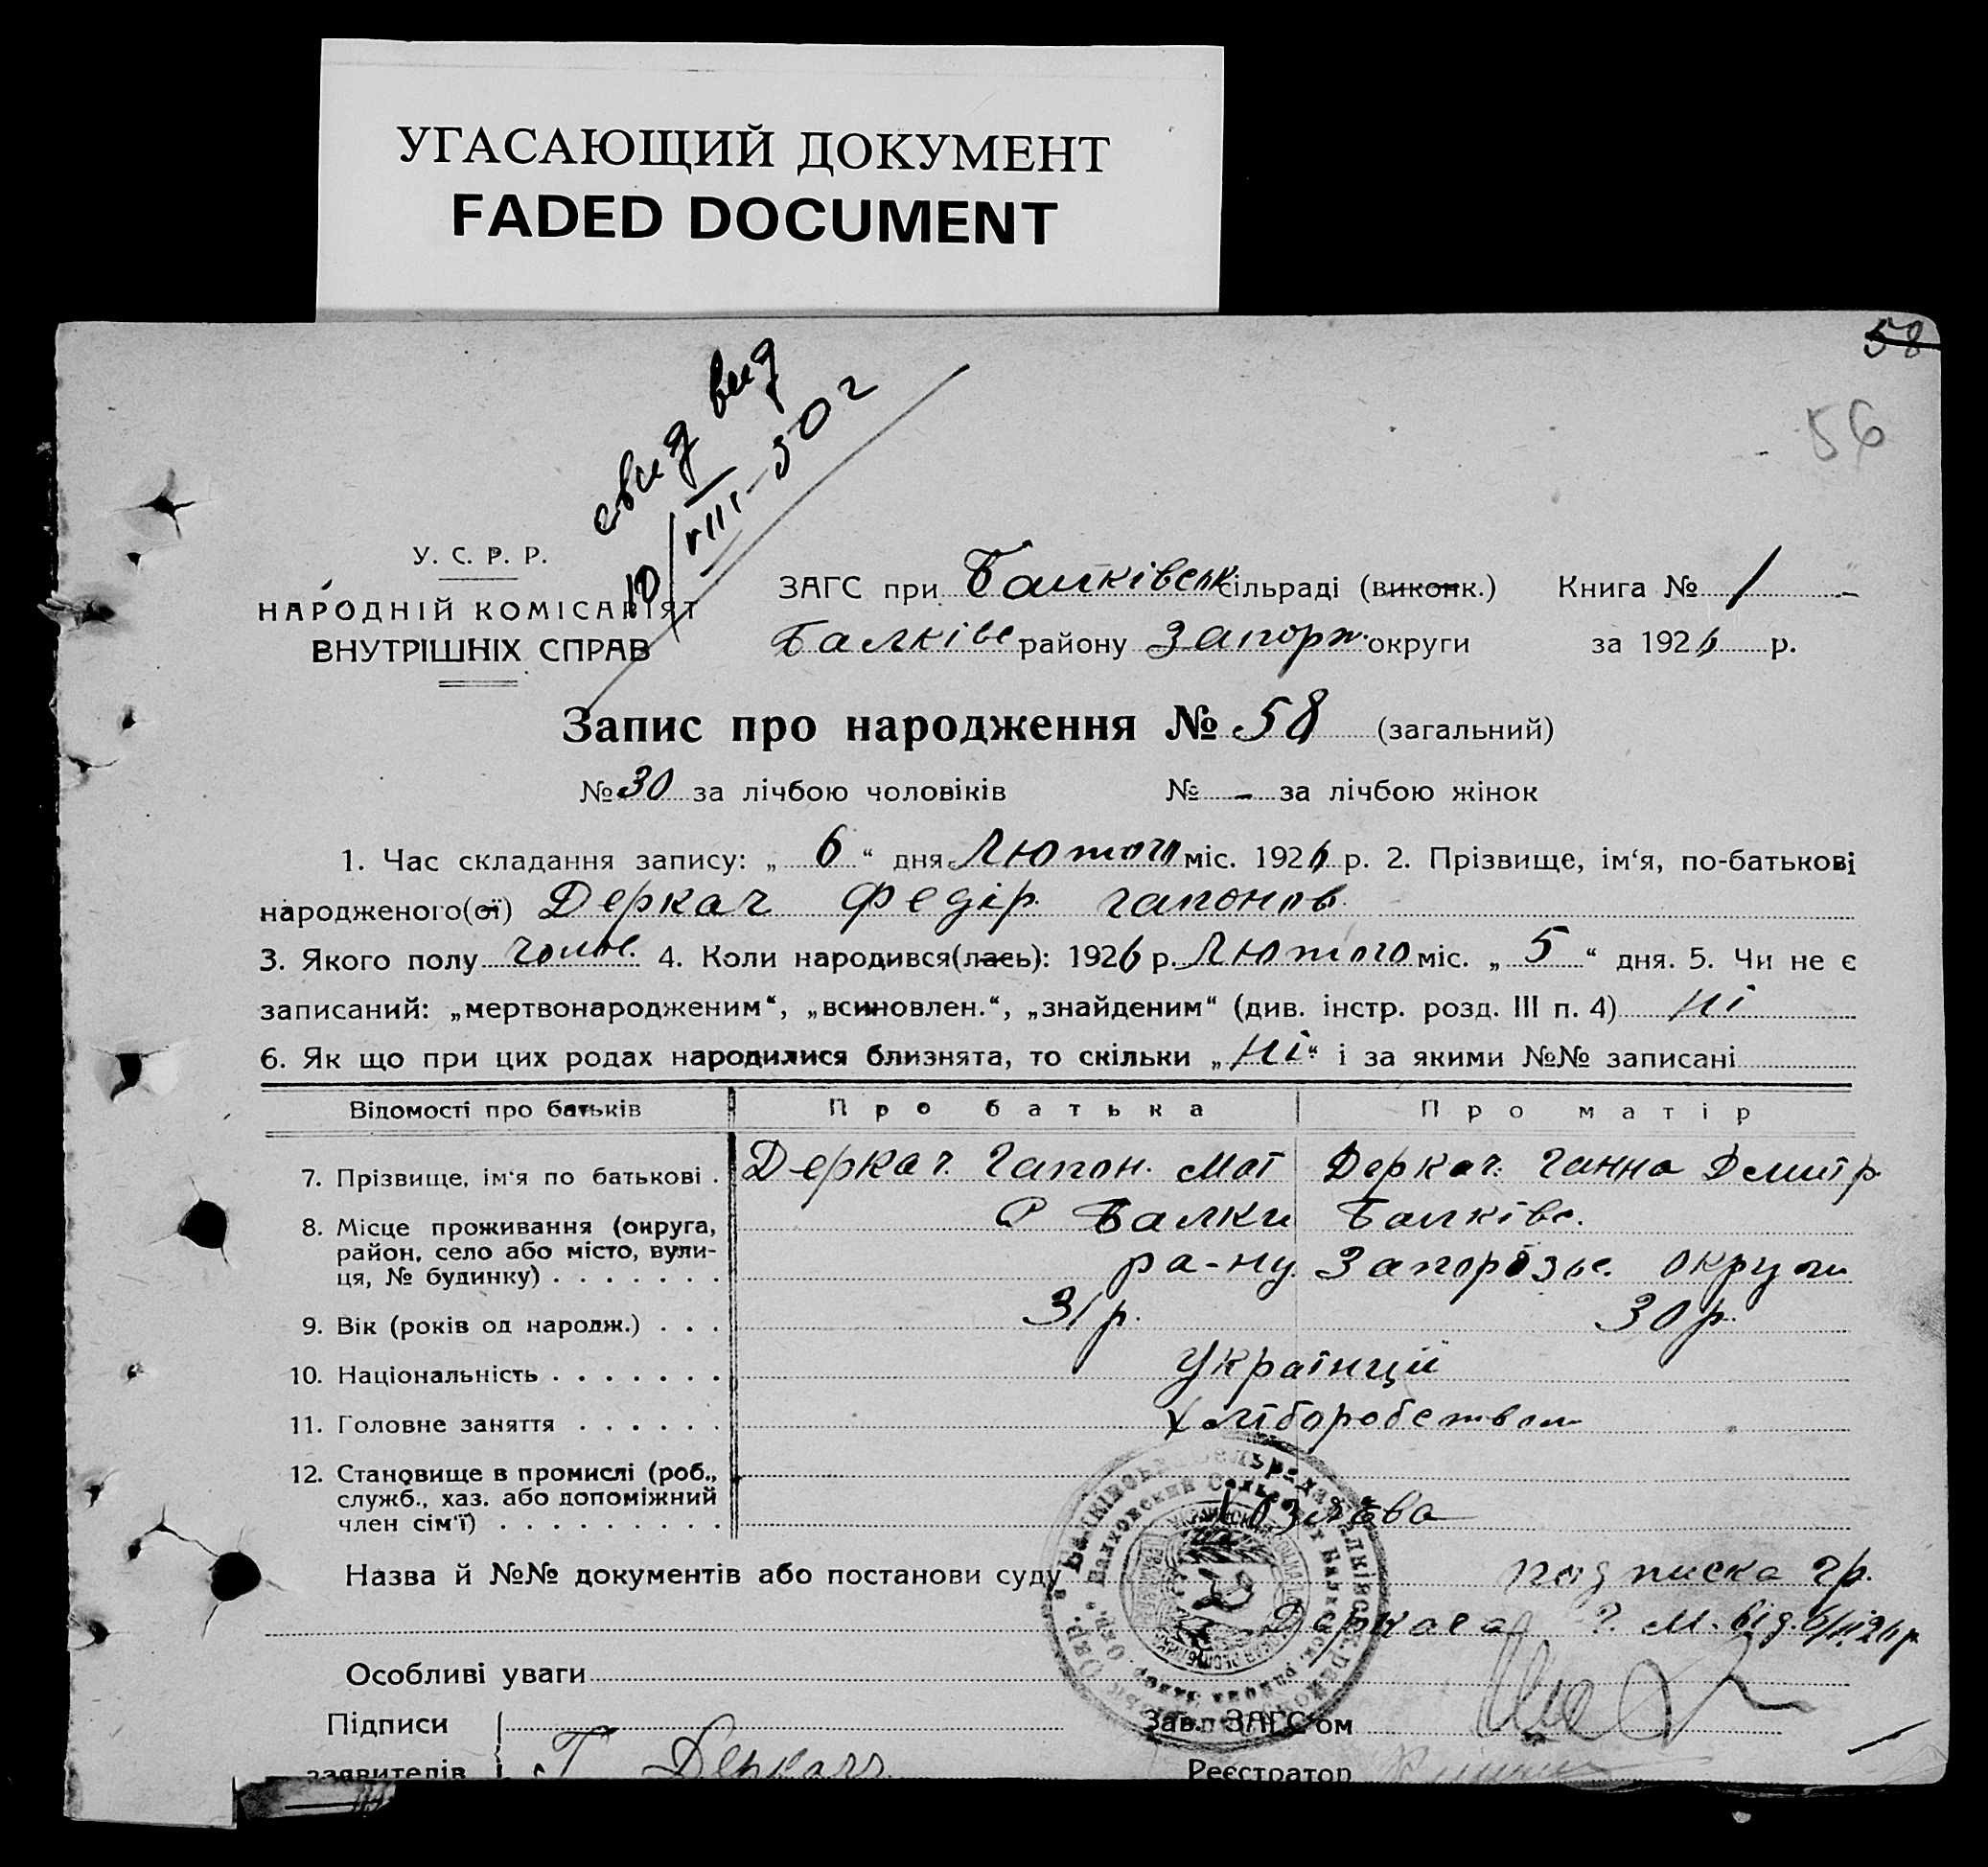 УГАСАЮЩИЙ ДОКУМЕНТ
FADED DOCUMENT
58
56
свид вид
10/VIII-50 г
У. С. Р. Р.
НАРОДНІЙ КОМІСАРІЯТ
ВНУТРІШНІХ СПРАВ
ЗАГС при Балківськ сільраді (виконк.) Книга № 1
Балківс району Запорж. округи за 1926 р.
Запис про народження № 58 (загальний)
№ 30 за лічбою чоловіків № - за лічбою жінок
1. Час складання запису: „ 6 “ дня Лютого міс. 1926 р. 2. Прізвище, ім‘я, по-батькові
народженого(ої) Деркач Федір Гапонов
3. Якого полу чолов. 4. Коли народився(лась): 1926 р. Лютого міс. „ 5 “ дня. 5. Чи не є
записаний: „мертвонародженим“, „всиновлен.“, „знайденим“ (див. інстр. розд. III п. 4) ні
6. Як що при цих родах народилися близнята, то скільки „ Ні “ і за якими №№ записані
Відомості про батьків Про батька Про матір
7. Прізвище, ім‘я по батькові . Деркач. Гапон. Мат Деркач. Ганна Дмитр
8. Місце проживання (округа, С Балки Балківс.
район, село або місто, вули-
ця, № будинку) . . . . . . . ра-ну Запорізьс. округи
9. Вік (років од народж.) . . . 31 р. 30 р.
10. Національність . . . . . . . Українці
11. Головне заняття . . . . . . Хліборобством
12. Становище в промислі (роб.,
служб., хаз. або допоміжний
член сім‘ї) . . . . . . . . .
Назва й №№ документів або постанови суду подписка гр.
Деркача Г. М. від 6/II 26 р
Особливі уваги
Підписи Зав. ЗАГС‘ом
заявителів Г Деркач Реєстратор